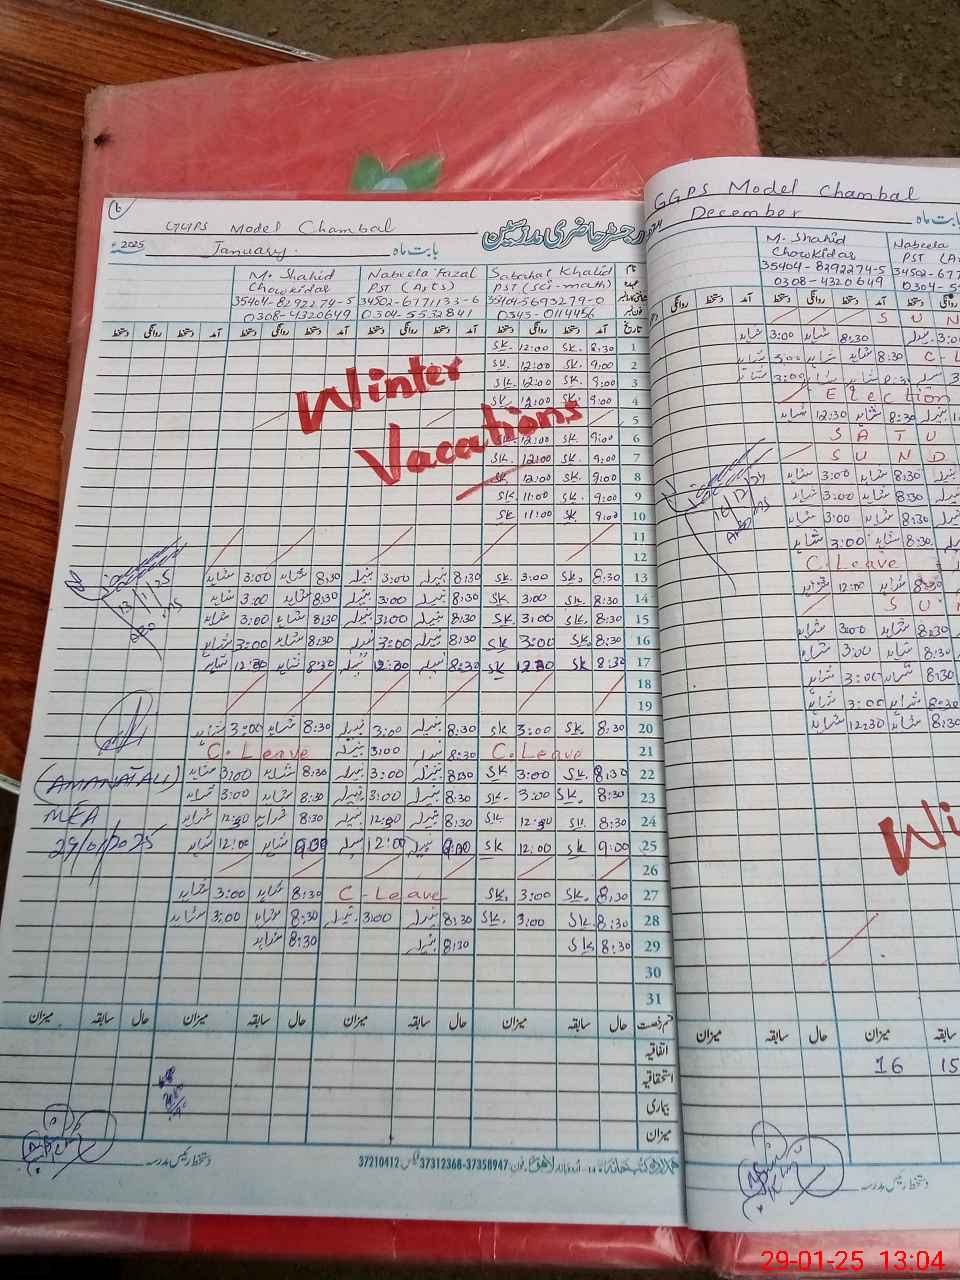 GGPS Model Chambal
رجسٹر حاضری مدرسین
2025 January. بابت ماہ
M. Shahid Nabeela Fazal Sabahat Khalid نام
Chowkidar PST (Arts) PST (Sci-math) عہدہ
35404-8292274-5 34502-6771133-6 35404-5693279-0
0308-4320649 0304-5532841 0345-0114456
دستخط روانگی دستخط آمد دستخط روانگی دستخط آمد دستخط روانگی دستخط آمد تاریخ
SK. 12:00 SK. 8:30 1
SK. 12:00 SK. 9:00 2
SK. 12:00 SK. 9:00 3
SK. 12:00 SK. 9:00 4
5
Winter
Vacations
SK. 12:00 SK. 9:00 6
SK. 12:00 SK. 9:00 7
SK 12:00 SK. 9:00 8
SK 11:00 SK. 9:00 9
SK 11:00 SK 9:00 10
11
12
شاہد 3:00 شاہد 8:30 نبیلہ 3:00 نبیلہ 8:30 SK. 3:00 SK. 8:30 13
شاہد 3:00 شاہد 8:30 نبیلہ 3:00 نبیلہ 8:30 SK 3:00 SK. 8:30 14
شاہد 3:00 شاہد 8:30 نبیلہ 3:00 نبیلہ 8:30 SK. 3:00 SK. 8:30 15
شاہد 3:00 شاہد 8:30 نبیلہ 3:00 نبیلہ 8:30 SK 3:00 SK. 8:30 16
شاہد 12:30 شاہد 8:30 نبیلہ 12:30 نبیلہ 8:30 SK 12:30 SK 8:30 17
18
19
شاہد 3:00 شاہد 8:30 نبیلہ 3:00 نبیلہ 8:30 SK 3:00 SK. 8:30 20
C. Leave نبیلہ 3:00 نبیلہ 8:30 C. Leave 21
شاہد 3:00 شاہد 8:30 نبیلہ 3:00 نبیلہ 8:30 SK 3:00 SK. 8:30 22
شاہد 3:00 شاہد 8:30 نبیلہ 3:00 نبیلہ 8:30 SK- 3:00 SK. 8:30 23
شاہد 12:30 شاہد 8:30 نبیلہ 12:30 نبیلہ 8:30 SK. 12:30 SK. 8:30 24
شاہد 12:00 شاہد 9:00 نبیلہ 12:00 نبیلہ 9:00 SK 12:00 SK 9:00 25
26
شاہد 3:00 شاہد 8:30 C-Leave SK. 3:00 SK. 8:30 27
شاہد 3:00 شاہد 8:30 نبیلہ 3:00 نبیلہ 8:30 SK. 3:00 SK. 8:30 28
شاہد 8:30 نبیلہ 8:30 SK 8:30 29
30
31
13/1/25
(AMANAT ALI)
MEA
29/01/2025
میزان سابقہ حال میزان سابقہ حال میزان سابقہ حال میزان سابقہ حال قسم رخصت
اتفاقیہ
استحقاقیہ
بیماری
میزان
دستخط رئیس مدرسہ
اردو بازار لاہور فون 37358947-37312368 فیکس 37210412
GGPS Model Chambal
December بابت ماہ
M. Shahid Nabeela
Chowkidar PST
35404-8292274-5 34502-677
0308-4320649 0304-5
دستخط روانگی دستخط آمد دستخط روانگی
S U N
شاہد 3:00 شاہد 8:30 نبیلہ 3:0
شاہد 3:00 شاہد 8:30 C-L
شاہد 3:00
Election
شاہد 12:30 شاہد 8:30 نبیلہ
S A T U
S U N D
شاہد 3:00 شاہد 8:30 نبیلہ
شاہد 3:00 شاہد 8:30 نبیلہ
شاہد 3:00 شاہد 8:30 نبیلہ
شاہد 3:00 شاہد 8:30
C. Leave
شاہد 12:00 شاہد 8:30
S U
شاہد 3:00 شاہد 8:30
شاہد 3:00 شاہد 8:30
شاہد 3:00 شاہد 8:30
شاہد 3:00 شاہد 8:30
شاہد 12:30 شاہد 8:30
Wi
میزان سابقہ حال میزان سابقہ
16 15
دستخط رئیس مدرسہ
29-01-25 13:04